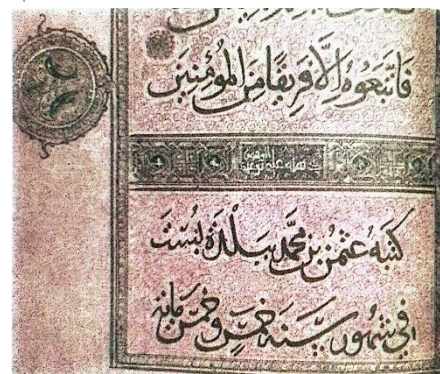 فَاتَّبَعُوهُ إِلَّا فَرِيقًا مِنَ الْمُؤْمِنِينَ
كتبه عثمن بن محمد ببلدة بُسْتَ
في شهور سنة خمس وخمس مائة